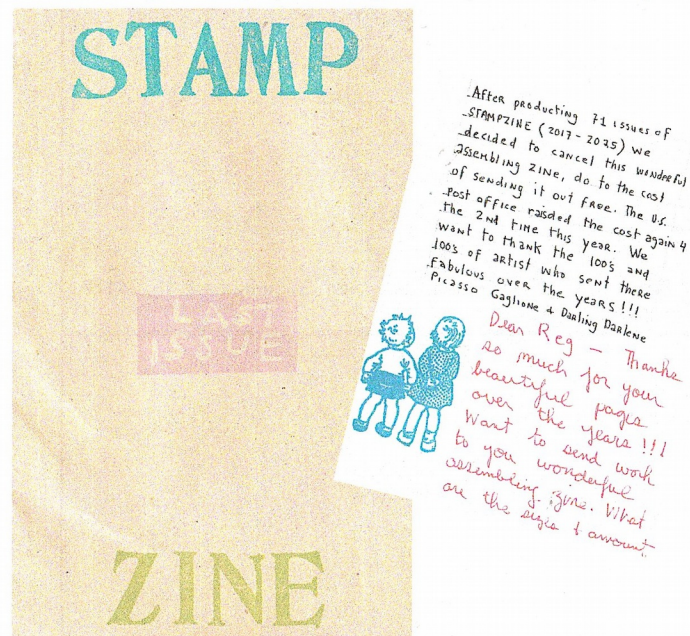 STAMP
LAST
ISSUE
ZINE
After producting 71 issues of
STAMPZINE (2017-2025) we
decided to cancel this wonderful
assembling zine, do to the cost
of sending it out free. The U.S.
Post office raisded the cost again 4
the 2nd time this year. We
want to thank the 100's and
100's of artist who sent there
fabulous over the years !!!
Picasso Gaglione + Darling Darlene
Dear Reg — Thanks
so much for your
beautiful pages
over the years !!!
Want to send work
to you wonderful
assembling zine. What
are the sizes & amount